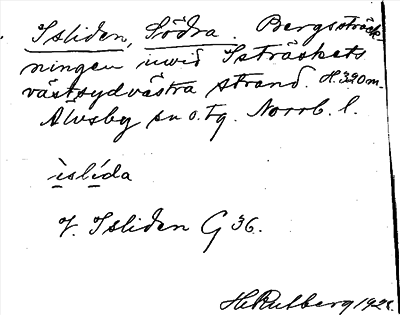 Isliden, Södra. Bergssträck-
ningen invid Isträskets
västsydvästra strand. H. 390 m.
Älvsby sn o. tg. Norrb. l.
ìslída
V. Isliden G 36.
H. Rutberg 192